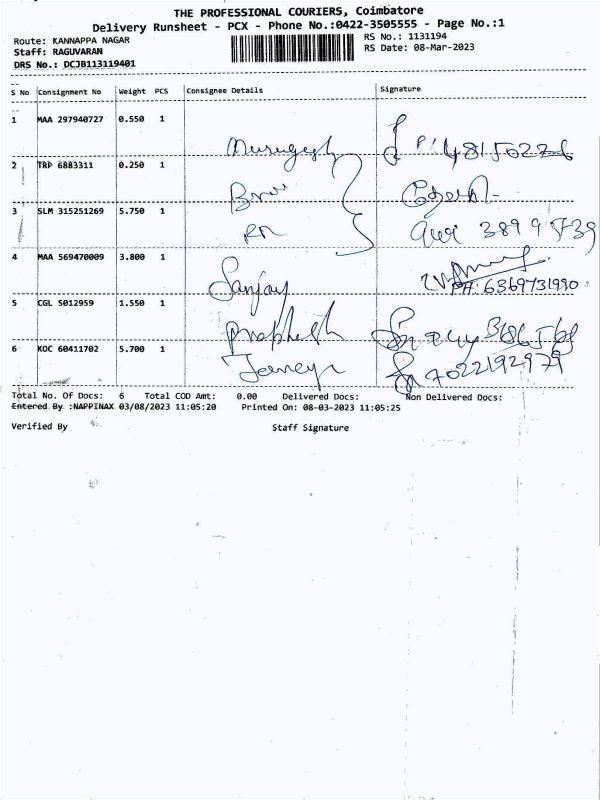 THE PROFESSIONAL COURIERS, Coimbatore
Delivery Runsheet - PCX - Phone No.:0422-3505555 - Page No.:1
Route: KANNAPPA NAGAR
Staff: RAGUVARAN
DRS No.: DCJB113119401
RS No.: 1131194
RS Date: 08-Mar-2023
S No Consignment No Weight PCS Consignee Details Signature
1 MAA 297940727 0.550 1
Murugesh
2 TRP 6883311 0.250 1
3 SLM 315251269 5.750 1
4 MAA 569470009 3.800 1
Sanjay PH: 6369731990
5 CGL 5012959 1.550 1
6 KOC 60411702 5.700 1
7022192979
Total No. Of Docs: 6 Total COD Amt: 0.00 Delivered Docs: Non Delivered Docs:
Entered By :NAPPINAX 03/08/2023 11:05:20 Printed On: 08-03-2023 11:05:25
Verified By Staff Signature